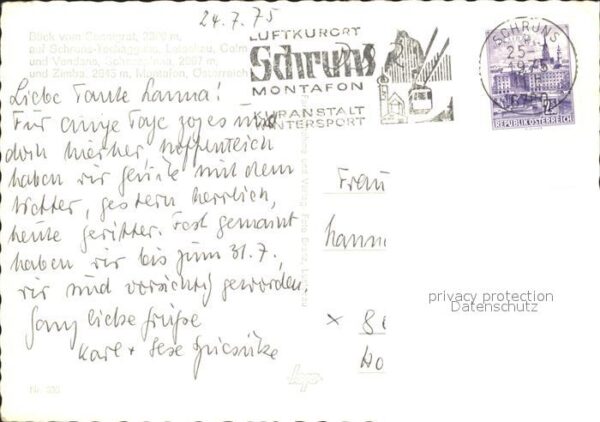 24.7.75
Blick vom Sennigrat, 2300 m,
auf Schruns-Tschagguns, Latschau, Golm
und Vandans, Schesaplana, 2967 m,
und Zimba, 2645 m, Montafon, Österreich
LUFTKURORT
Schruns
MONTAFON
KURANSTALT
WINTERSPORT
SCHRUNS
25
1975
6780
REPUBLIK ÖSTERREICH
Liebe Tante Hanna!
Für einige Tage zog es uns
doch hierher hoffentlich
haben wir Glück mit dem
Wetter, gestern herrlich,
heute Gewitter. Fest gemietet
haben wir bis zum 31.7.,
wir sind vorsichtig geworden.
Ganz liebe Grüße
Karl +
Frau
Hann
privacy protection
Datenschutz
Nr. 335